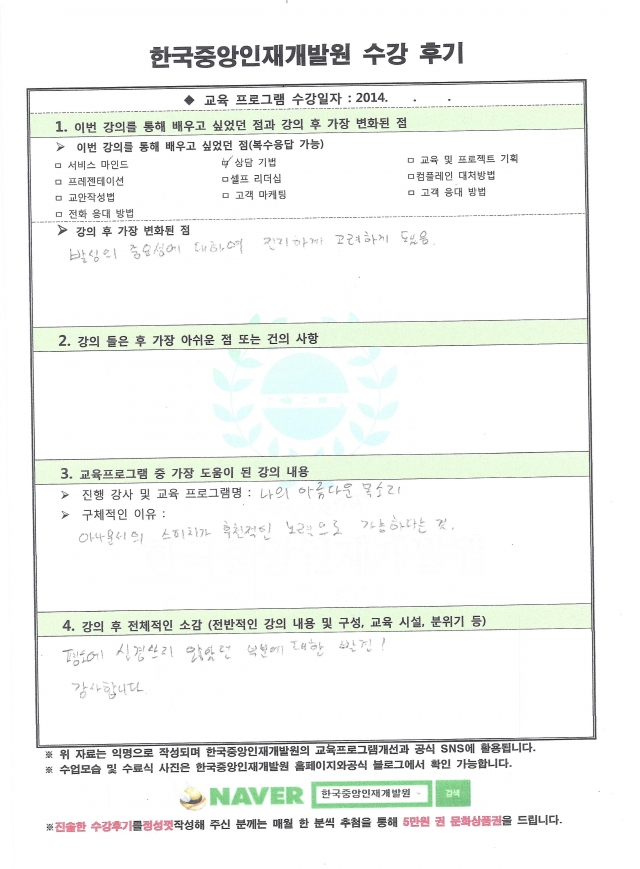 한국중앙인재개발원 수강 후기
◆ 교육 프로그램 수강일자 : 2014. . .
1. 이번 강의를 통해 배우고 싶었던 점과 강의 후 가장 변화된 점
➢ 이번 강의를 통해 배우고 싶었던 점(복수응답 가능)
□ 서비스 마인드 ☑ 상담 기법 □ 교육 및 프로젝트 기획
□ 프레젠테이션 □셀프 리더십 □컴플레인 대처방법
□ 교안작성법 □ 고객 마케팅 □ 고객 응대 방법
□ 전화 응대 방법
➢ 강의 후 가장 변화된 점
발성의 중요성에 대하여 진지하게 고려하게 되었음.
2. 강의 들은 후 가장 아쉬운 점 또는 건의 사항
3. 교육프로그램 중 가장 도움이 된 강의 내용
➢ 진행 강사 및 교육 프로그램명 : 나의 아름다운 목소리
➢ 구체적인 이유 :
아나운서의 스피치가 후천적인 노력으로 가능하다는 것.
4. 강의 후 전체적인 소감 (전반적인 강의 내용 및 구성, 교육 시설, 분위기 등)
평소에 신경쓰지 않았던 부분에 대한 발견!
감사합니다.
※ 위 자료는 익명으로 작성되며 한국중앙인재개발원의 교육프로그램개선과 공식 SNS에 활용됩니다.
※ 수업모습 및 수료식 사진은 한국중앙인재개발원 홈페이지와공식 블로그에서 확인 가능합니다.
NAVER 한국중앙인재개발원 검색
※진솔한 수강후기를정성껏작성해 주신 분께는 매월 한 분씩 추첨을 통해 5만원 권 문화상품권을 드립니다.